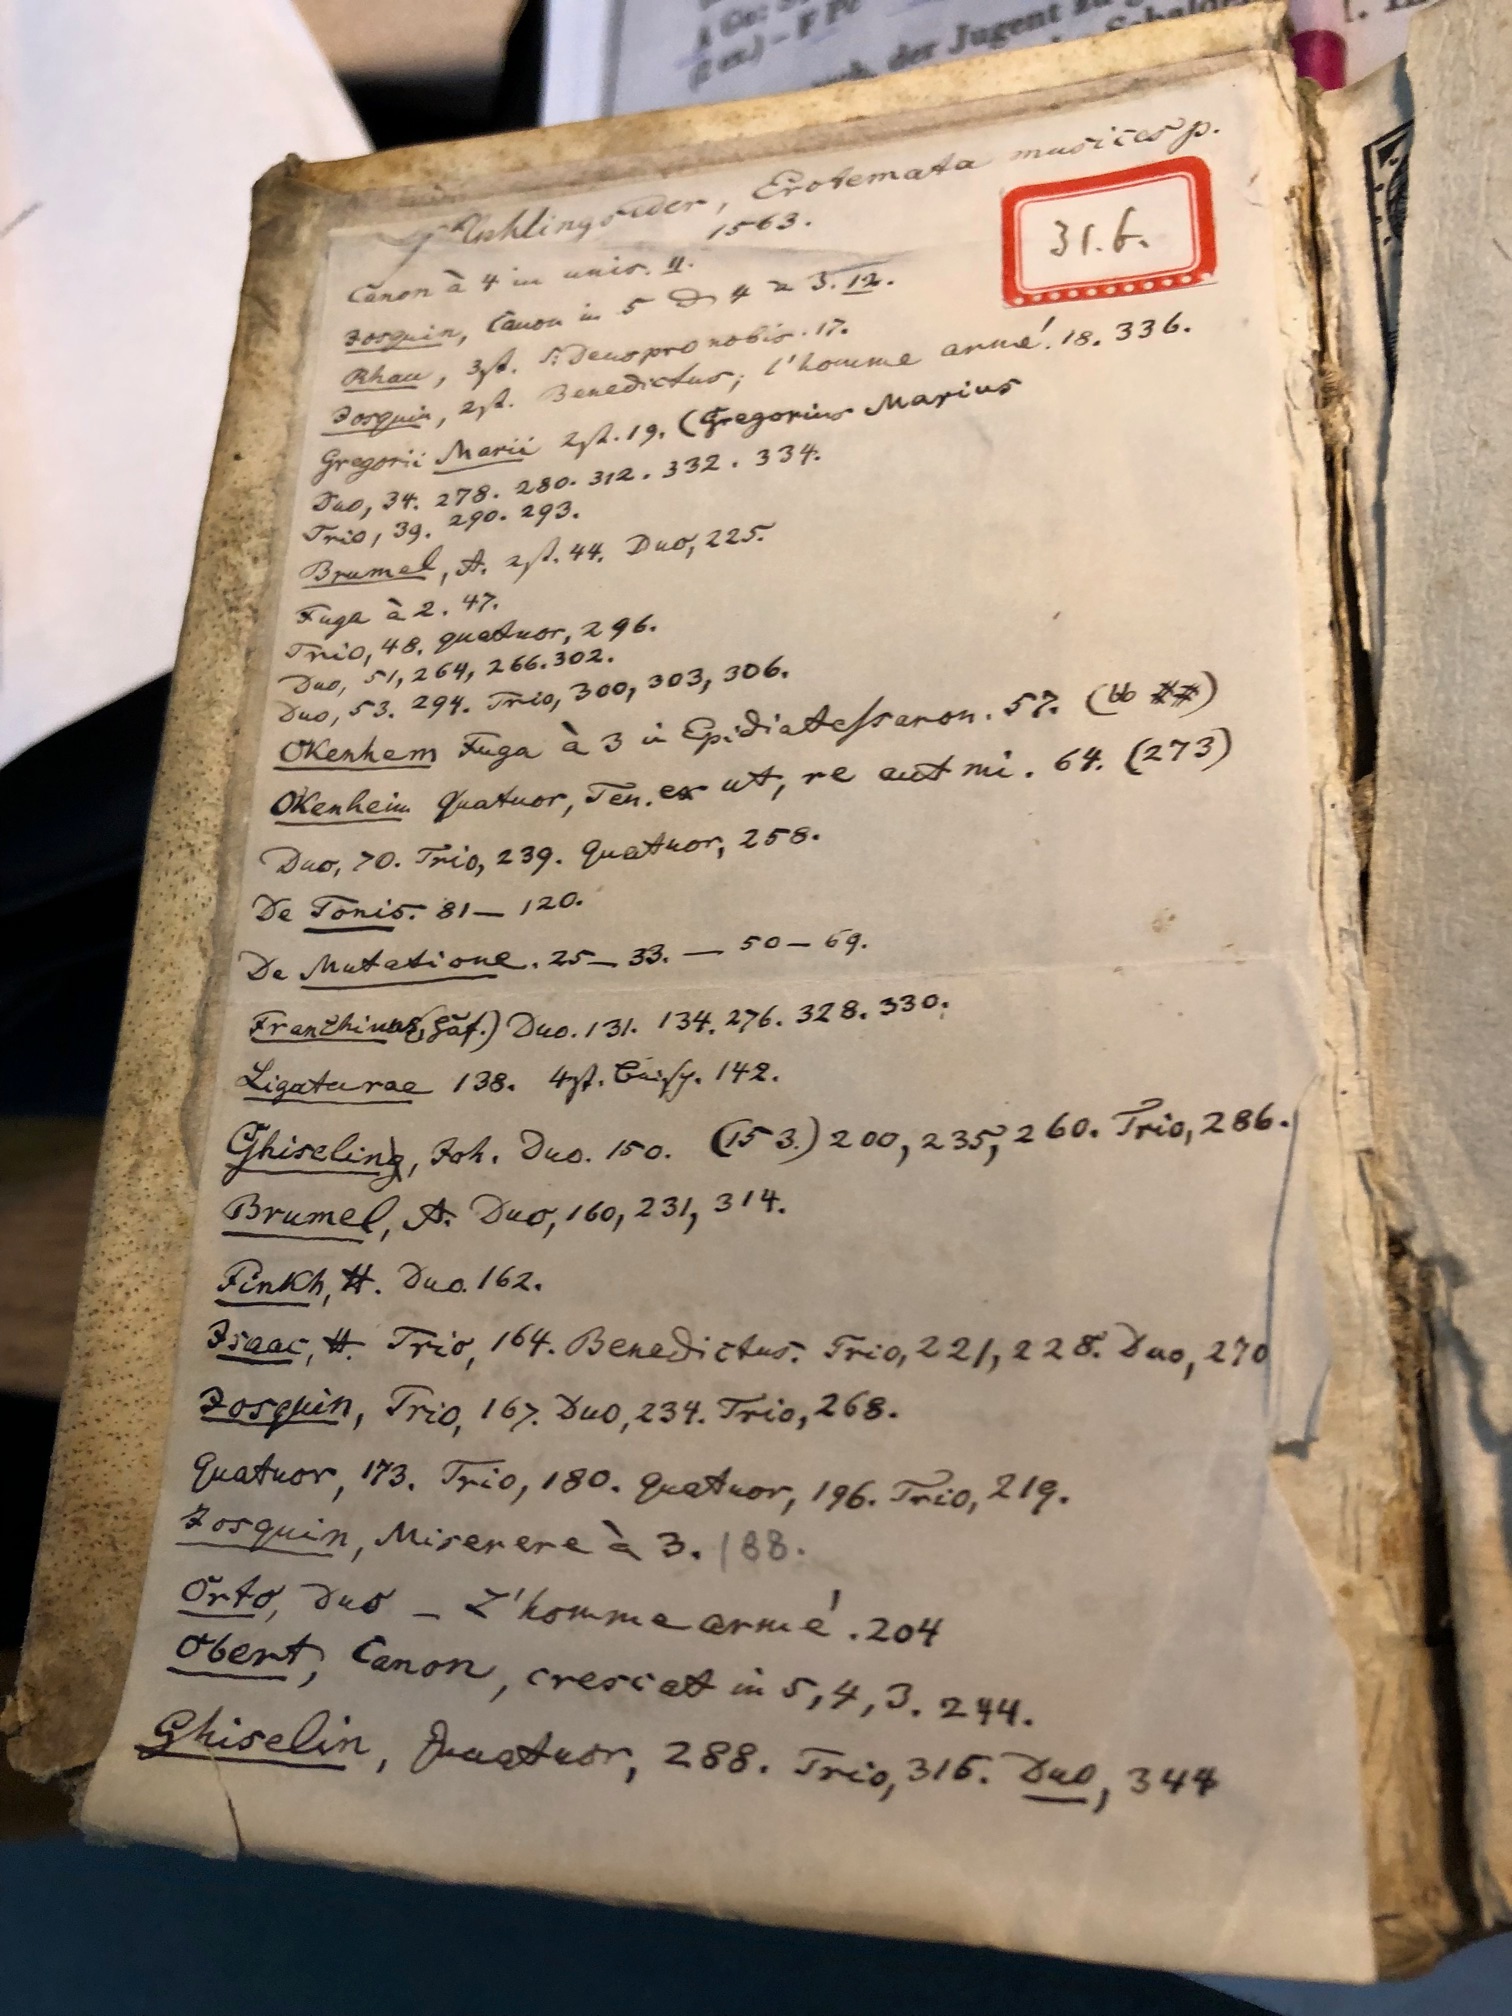 A Co: S
(2 ex.) – F Pc
der Jugent zu
Erotemata musices p.
1563.
31.6.
Canon à 4 in unis. 11.
Josquin, Canon in 5 4 3. 12.
Rhau, 3st. Si Deus pro nobis. 17.
Josquin, 2st. Benedictus; l'homme armé. 18. 336.
Gregorii Marii 2st. 19. (Gregorius Marius
Duo, 34. 278. 280. 312. 332. 334.
Trio, 39. 290. 293.
Brumel, A. 2st. 44. Duo, 225.
Fuga à 2. 47.
Trio, 48. quatuor, 296.
Duo, 51, 264, 266. 302.
Duo, 53. 294. Trio, 300, 303, 306.
Okenhem Fuga à 3 in Epidiatessaron. 57. (bb ##)
Okenheim Quatuor, Ten. ex ut, re aut mi. 64. (273)
Duo, 70. Trio, 239. Quatuor, 258.
De Tonis. 81 – 120.
De Mutatione. 25 – 33. – 50 – 69.
Franchinus (Gaf.) Duo. 131. 134. 276. 328. 330.
Ligaturae 138. 4st. 142.
Ghiseling, Joh. Duo. 150. (153.) 200, 235, 260. Trio, 286.
Brumel, A. Duo, 160, 231, 314.
Finkh, H. Duo. 162.
Isaac, H. Trio, 164. Benedictus. Trio, 221, 228. Duo, 270
Josquin, Trio, 167. Duo, 234. Trio, 268.
Quatuor, 173. Trio, 180. Quatuor, 196. Trio, 219.
Josquin, Miserere à 3. 188.
Orto, Duo – L'homme armé. 204
Obert, Canon, crescat in 5, 4, 3. 244.
Ghiselin, Quatuor, 288. Trio, 316. Duo, 344